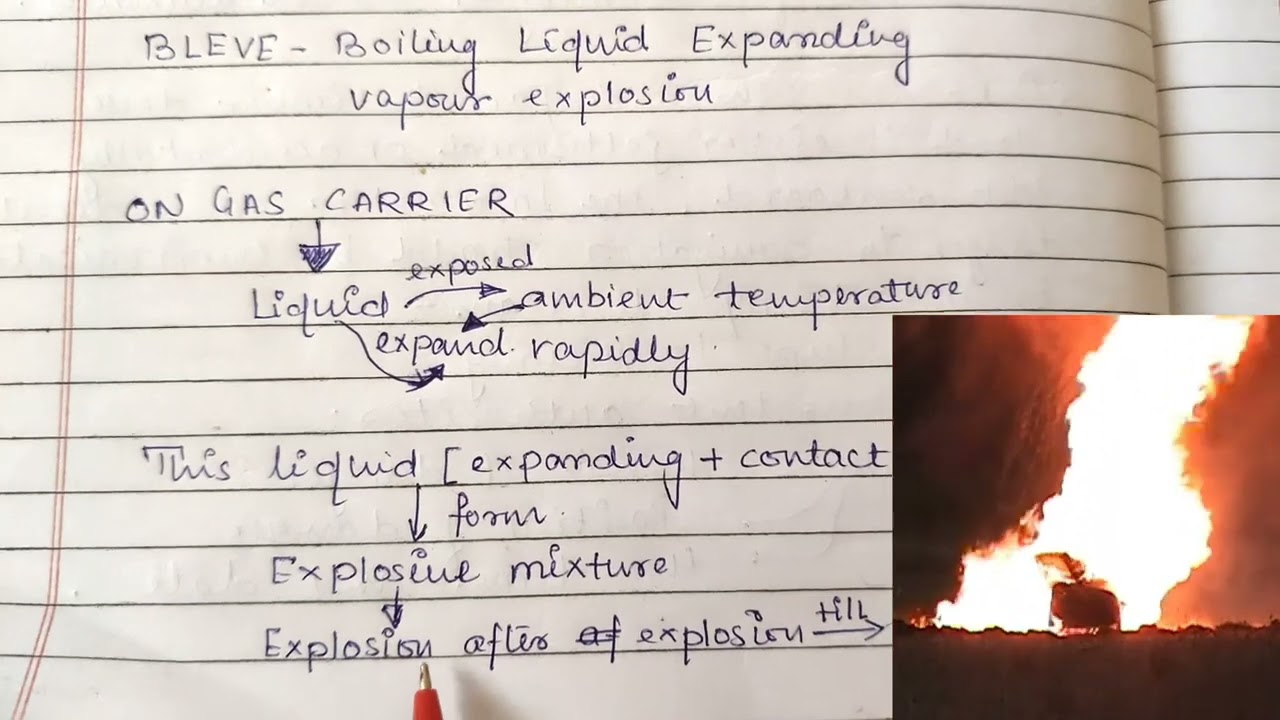 BLEVE - Boiling Liquid Expanding
vapour explosion
ON GAS CARRIER
exposed
Liquid ambient temperature
expand. rapidly
This liquid [expanding + contact
form.
Explosive mixture
till
Explosion after of explosion